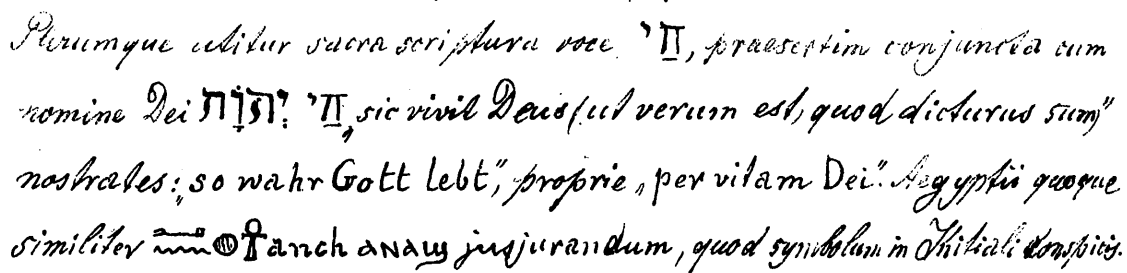 Plerumque utitur sacra scriptura voce חַי, praesertim conjuncta cum
nomine Dei יְהוָֹה חַי „sic vivit Deus (ut verum est, quod dicturus sum)”
nostrates: „so wahr Gott lebt”, proprie „per vitam Dei”. Aegyptii quoque
similiter anch ⲁⲛⲁϣ jusjurandum, quod symbolum in Initiali conspicis.